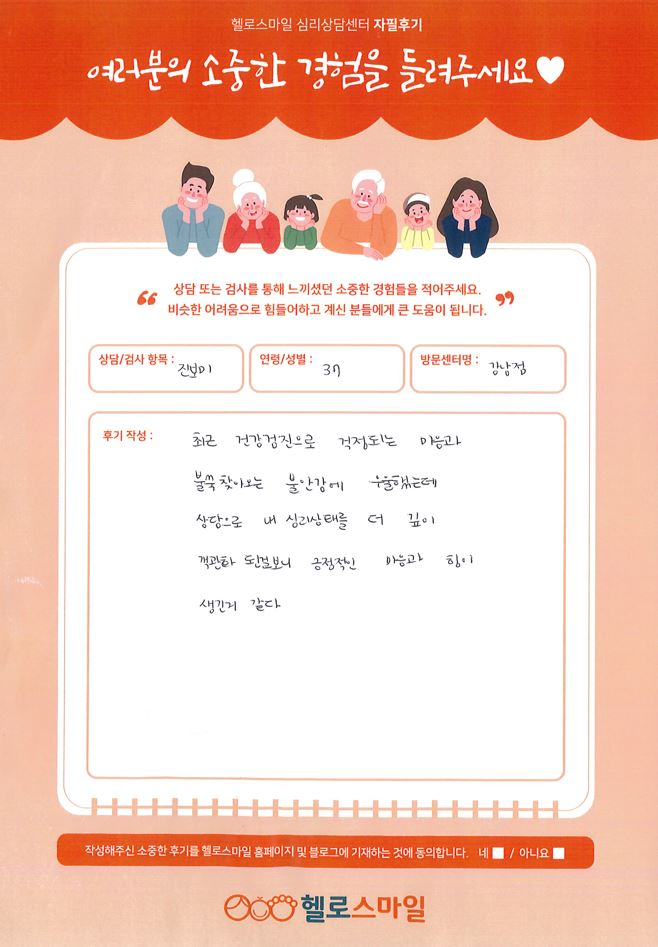 헬로스마일 심리상담센터 자필후기
여러분의 소중한 경험을 들려주세요
상담 또는 검사를 통해 느끼셨던 소중한 경험들을 적어주세요.
비슷한 어려움으로 힘들어하고 계신 분들에게 큰 도움이 됩니다.
상담/검사 항목 : 진보미
연령/성별 : 37
방문센터명 : 강남점
후기 작성 :
최근 건강검진으로 걱정되는 마음과
불쑥 찾아오는 불안감에 우울했는데
상담으로 내 심리상태를 더 깊이
객관화 된걸보니 긍정적인 마음과 힘이
생긴거 같다
작성해주신 소중한 후기를 헬로스마일 홈페이지 및 블로그에 기재하는 것에 동의합니다. 네 / 아니요
헬로스마일